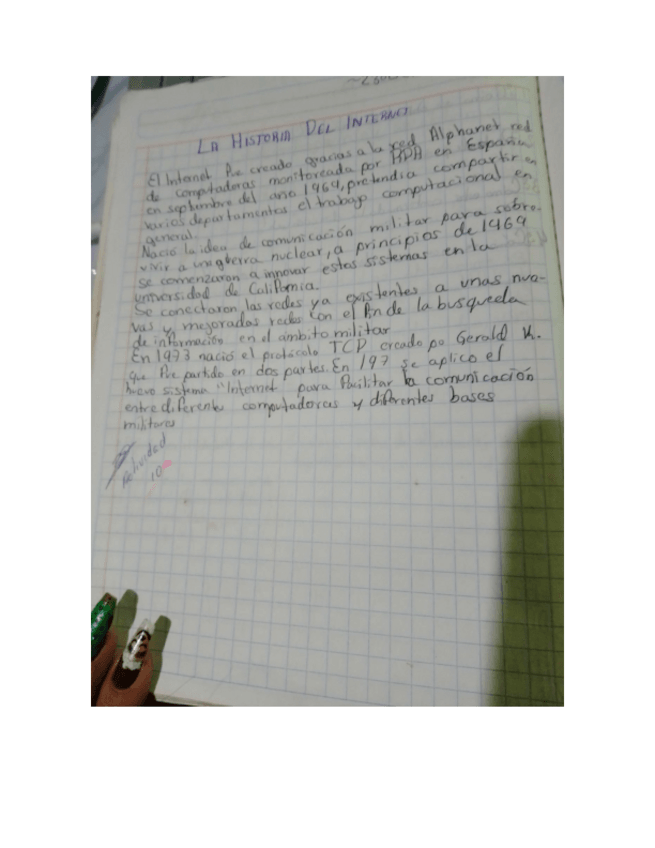 LA HISTORIA DEL INTERNET
El Internet fue creado gracias a la red Alphanet red
de computadoras monitoreada por en España
en septiembre del año 1969, pretendia compartir en
varios departamentos el trabajo computacional en
general.
Nació la idea de comunicación militar para sobre-
vivir a una guerra nuclear, a principios de 1969
se comenzaron a innovar estos sistemas en la
universidad de California.
Se conectaron las redes ya existentes a unas nue-
vas y mejoradas redes con el fin de la busqueda
de información en el ámbito militar
En 1973 nació el protócolo TCP creado po Gerald K.
que fue partido en dos partes. En 197 se aplico el
nuevo sistema "Internet para facilitar la comunicación
entre diferentes computadoras y diferentes bases
militares
Actividad
10